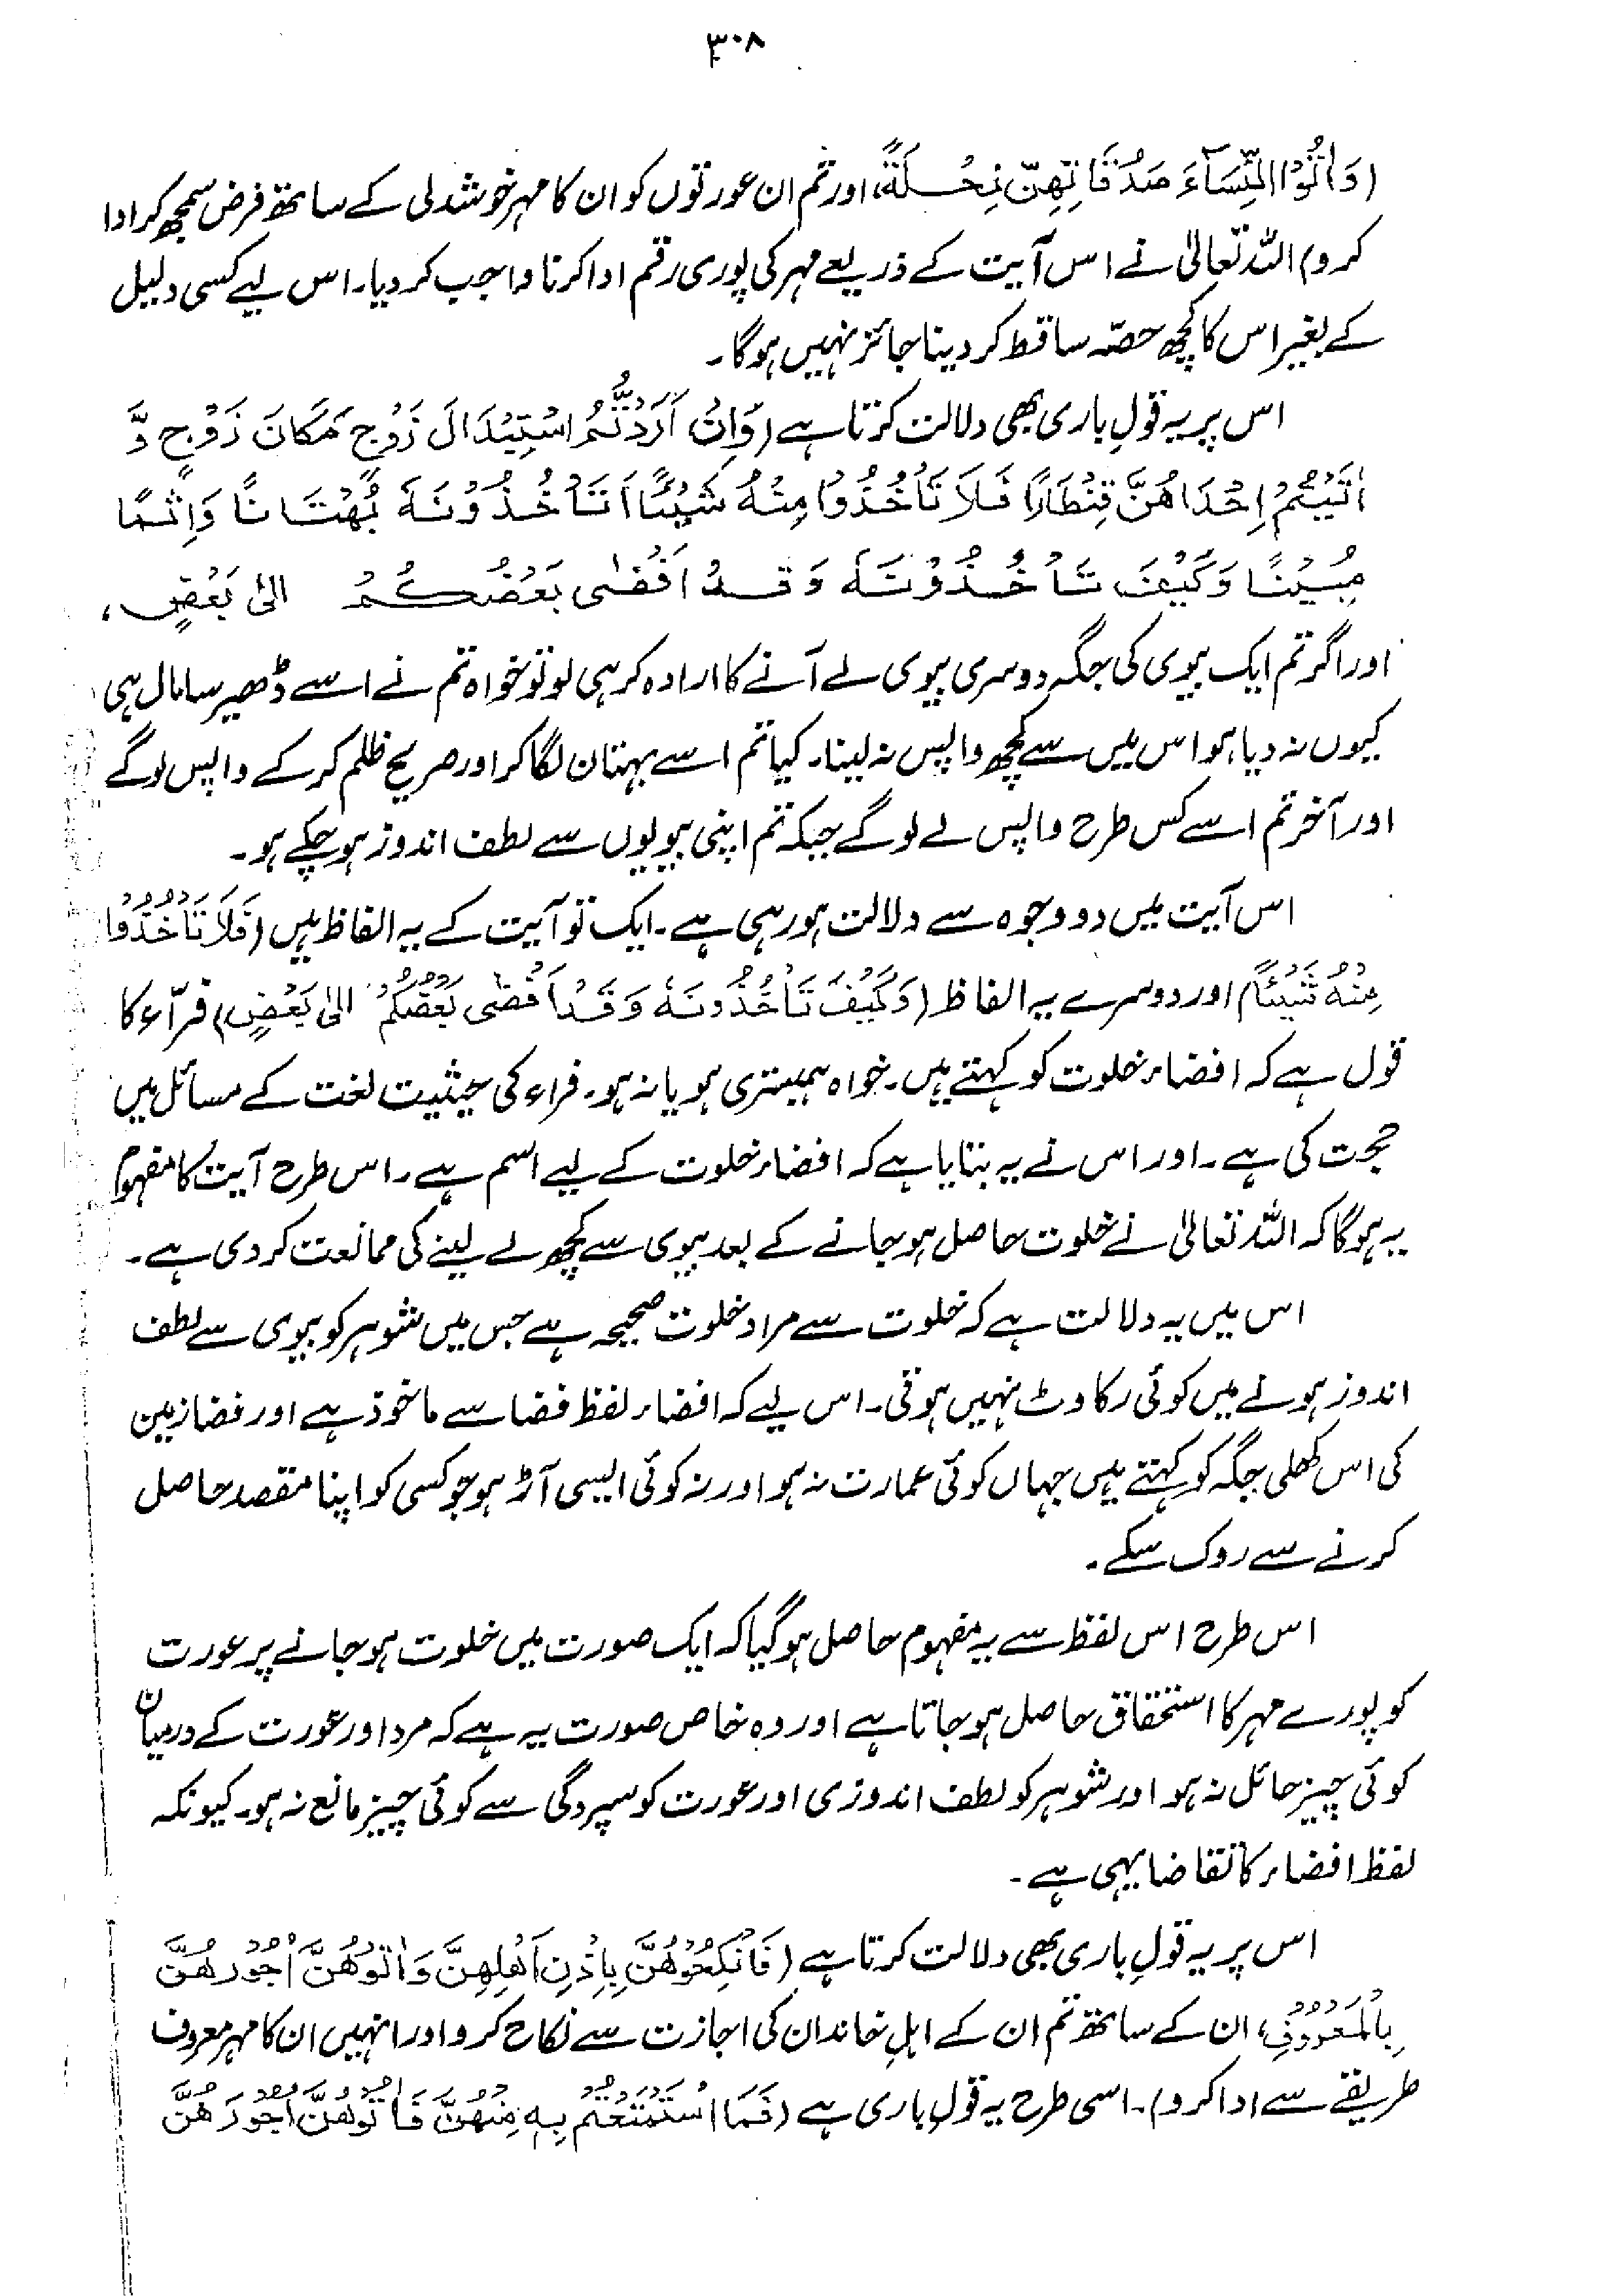 ۳۰۸
(وَاٰتُوا النِّسَآءَ صَدُقَاتِهِنَّ نِحْلَةً، اور تم ان عورتوں کو ان کا مہر خوشدلی کے ساتھ فرض سمجھ کر ادا
کرو) اللہ تعالیٰ نے اس آیت کے ذریعے مہر کی پوری رقم ادا کرنا واجب کر دیا۔ اس لیے کسی دلیل
کے بغیر اس کا کچھ حصّہ ساقط کر دینا جائز نہیں ہوگا۔
اس پر یہ قولِ باری بھی دلالت کرتا ہے (وَاِنْ اَرَدْتُّمُ اسْتِبْدَالَ زَوْجٍ مَّكَانَ زَوْجٍ وَّ
اٰتَيْتُمْ اِحْدَاهُنَّ قِنْطَارًا فَلَا تَأْخُذُوْا مِنْهُ شَيْئًا اَتَأْخُذُوْنَهٗ بُهْتَانًا وَّاِثْمًا
مُّبِيْنًا وَكَيْفَ تَأْخُذُوْنَهٗ وَقَدْ اَفْضٰى بَعْضُكُمْ اِلىٰ بَعْضٍ،
اور اگر تم ایک بیوی کی جگہ دوسری بیوی لے آنے کا ارادہ کر ہی لو تو خواہ تم نے اسے ڈھیر سا مال ہی
کیوں نہ دیا ہو اس میں سے کچھ واپس نہ لینا۔ کیا تم اسے بہتان لگا کر اور صریح ظلم کر کے واپس لوگے
اور آخر تم اسے کس طرح واپس لے لوگے جبکہ تم اپنی بیویوں سے لطف اندوز ہو چکے ہو۔
اس آیت میں دو وجوہ سے دلالت ہو رہی ہے۔ ایک تو آیت کے یہ الفاظ ہیں (فَلَا تَأْخُذُوْا
مِنْهُ شَيْئًا) اور دوسرے یہ الفاظ (وَكَيْفَ تَأْخُذُوْنَهٗ وَقَدْ اَفْضٰى بَعْضُكُمْ اِلىٰ بَعْضٍ) فرّاء کا
قول ہے کہ افضاء خلوت کو کہتے ہیں۔ خواہ ہمبستری ہو یا نہ ہو۔ فراء کی حیثیت لغت کے مسائل میں
حجت کی ہے۔ اور اس نے یہ بتایا ہے کہ افضاء خلوت کے لیے اسم ہے۔ اس طرح آیت کا مفہوم
یہ ہوگا کہ اللہ تعالیٰ نے خلوت حاصل ہو جانے کے بعد بیوی سے کچھ لے لینے کی ممانعت کر دی ہے۔
اس میں یہ دلالت ہے کہ خلوت سے مراد خلوت صحیحہ ہے جس میں شوہر کو بیوی سے لطف
اندوز ہونے میں کوئی رکاوٹ نہیں ہوتی۔ اس لیے کہ افضاء لفظ فضا سے ماخوذ ہے اور فضا زمین
کی اس کھلی جگہ کو کہتے ہیں جہاں کوئی عمارت نہ ہو اور نہ کوئی ایسی آڑ ہو جو کسی کو اپنا مقصد حاصل
کرنے سے روک سکے۔
اس طرح اس لفظ سے یہ مفہوم حاصل ہو گیا کہ ایک صورت میں خلوت ہو جانے پر عورت
کو پورے مہر کا استحقاق حاصل ہو جاتا ہے اور وہ خاص صورت یہ ہے کہ مرد اور عورت کے درمیان
کوئی چیز حائل نہ ہو اور شوہر کو لطف اندوزی اور عورت کو سپردگی سے کوئی چیز مانع نہ ہو۔ کیونکہ
لفظ افضاء کا تقاضا یہی ہے۔
اس پر یہ قولِ باری بھی دلالت کرتا ہے (فَانْكِحُوْهُنَّ بِاِذْنِ اَهْلِهِنَّ وَاٰتُوْهُنَّ اُجُوْرَهُنَّ
بِالْمَعْرُوْفِ، ان کے ساتھ تم ان کے اہلِ خاندان کی اجازت سے نکاح کرو اور انہیں ان کا مہر معروف
طریقے سے ادا کرو)۔ اسی طرح یہ قولِ باری ہے (فَمَا اسْتَمْتَعْتُمْ بِهٖ مِنْهُنَّ فَاٰتُوْهُنَّ اُجُوْرَهُنَّ